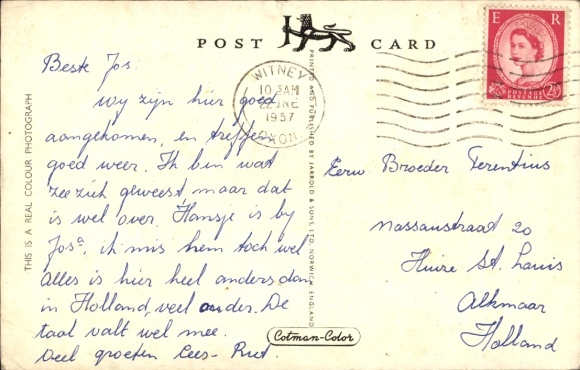 POST CARD
E R
POSTAGE REVENUE
2½
WITNEY
10 30 AM
22 JNE
1957
OXON.
Beste Jos.
Wy zijn hier goed
aangekomen, en treffen
goed weer. Ik ben wat
zeeziek geweest maar dat
is wel over. Hansje is by
Josª, ik mis hem toch wel
Alles is hier heel anders dan
in Holland, veel ouder. De
taal valt wel mee.
Veel groeten Cees - Riet.
Eerw Broeder Terentius
Nassaustraat 20
Huize St. Louis
Alkmaar
Holland
THIS IS A REAL COLOUR PHOTOGRAPH
PRINTED AND PUBLISHED BY JARROLD & SONS LTD. NORWICH, ENGLAND
Cotman-Color